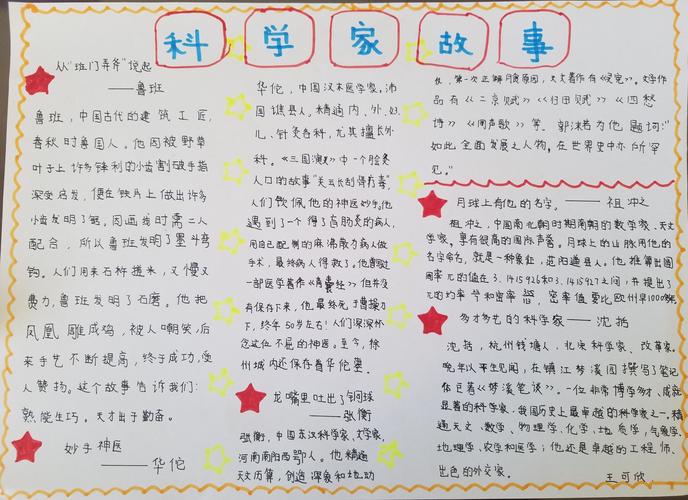 科学家故事
从“班门弄斧”说起
——鲁班
鲁班，中国古代的建筑工匠，
春秋时鲁国人。他因被野草
叶子上许多锋利的小齿割破手指
深受启发，便在铁片上做出许多
小齿发明了锯。因画线时需二人
配合，所以鲁班发明了墨斗弯
钩。人们用来石杵捶米，又慢又
费力，鲁班发明了石磨。他把
凤凰雕成鸡，被人嘲笑，后
来手艺不断提高，终于成功，受
人赞扬。这个故事告诉我们：
熟能生巧。天才出于勤奋。
妙手神医
——华佗
华佗，中国汉末医学家，沛
国谯县人。精通内、外、妇、
儿、针灸各科，尤其擅长外
科。《三国演义》中一个脍炙
人口的故事“关云长刮骨疗毒”，
人们钦佩他的神医妙手。他
遇到了一个得了盲肠炎的病人，
用自己配制的麻沸散为病人做
手术，最终病人得救了。他曾写过
一部医学著作《青囊经》但并没
有保存下来，他最终死于曹操刀
下，终年50岁左右！人们深深怀
念这位不屈的神医。至今，徐
州城内还保存着华佗墓。
龙嘴里吐出了铜球
——张衡
张衡，中国东汉科学家、文学家，
河南南阳西鄂人。他精通
天文历算，创造浑象和地动
仪，第一次正解月食原因，天文著作有《灵宪》。文学作
品有《二京赋》《归田赋》《四愁
诗》《同声歌》等。郭沫若为他题词：“
如此全面发展之人物，在世界里中亦所罕
见。”
月球上有他的名字。——祖冲之
祖冲之，中国南北朝时期南朝的数学家、天文
学家，享有很高的国际声誉。月球上的山脉用他的
名字命名，就是一种象征，范阳遒县人。他推算出圆
周率π的值在3.1415926和3.1415927之间，并提出了
π的约率和密率355/113，密率值要比欧州早1000多年。
多才多艺的科学家——沈括
沈括，杭州钱塘人，北宋科学家、改革家。
晚年以平生见闻，在镇江梦溪园撰写了笔记
体巨著《梦溪笔谈》。一位非常博学多才、成就
显著的科学家，我国历史上最卓越的科学家之一。精
通天文、数学、物理学、化学、地质学、气象学、
地理学、农学和医学；他还是卓越的工程师、
出色的外交家。
王可欣